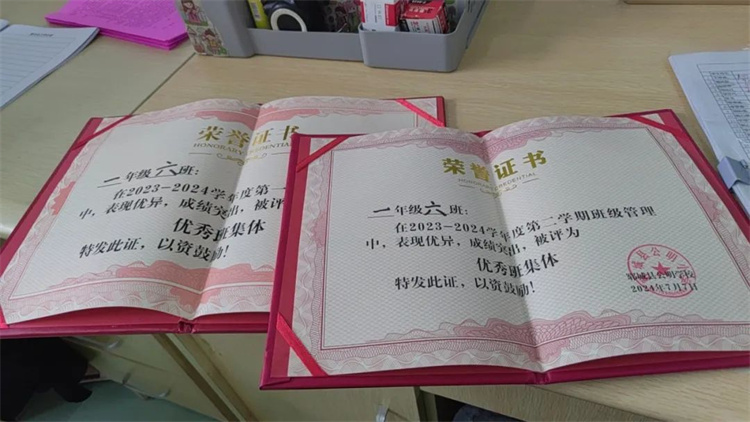 荣誉证书
HONORARY CREDENTIAL
一年级六班:
在2023-2024学年度第一
中,表现优异,成绩突出,被评
优秀班集体
特发此证,以资鼓励!
荣誉证书
二年级六班:
在2023-2024学年度第二学期班级管理
中,表现优异,成绩突出,被评为
优秀班集体
特发此证,以资鼓励!
城县公明
郓城县公明学校
2024年7月7日